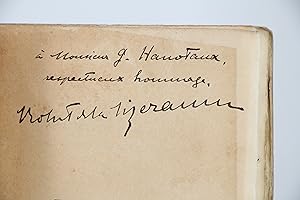 à Monsieur G. Hanotaux,
respectueux hommage,
Robert de la Sizeranne